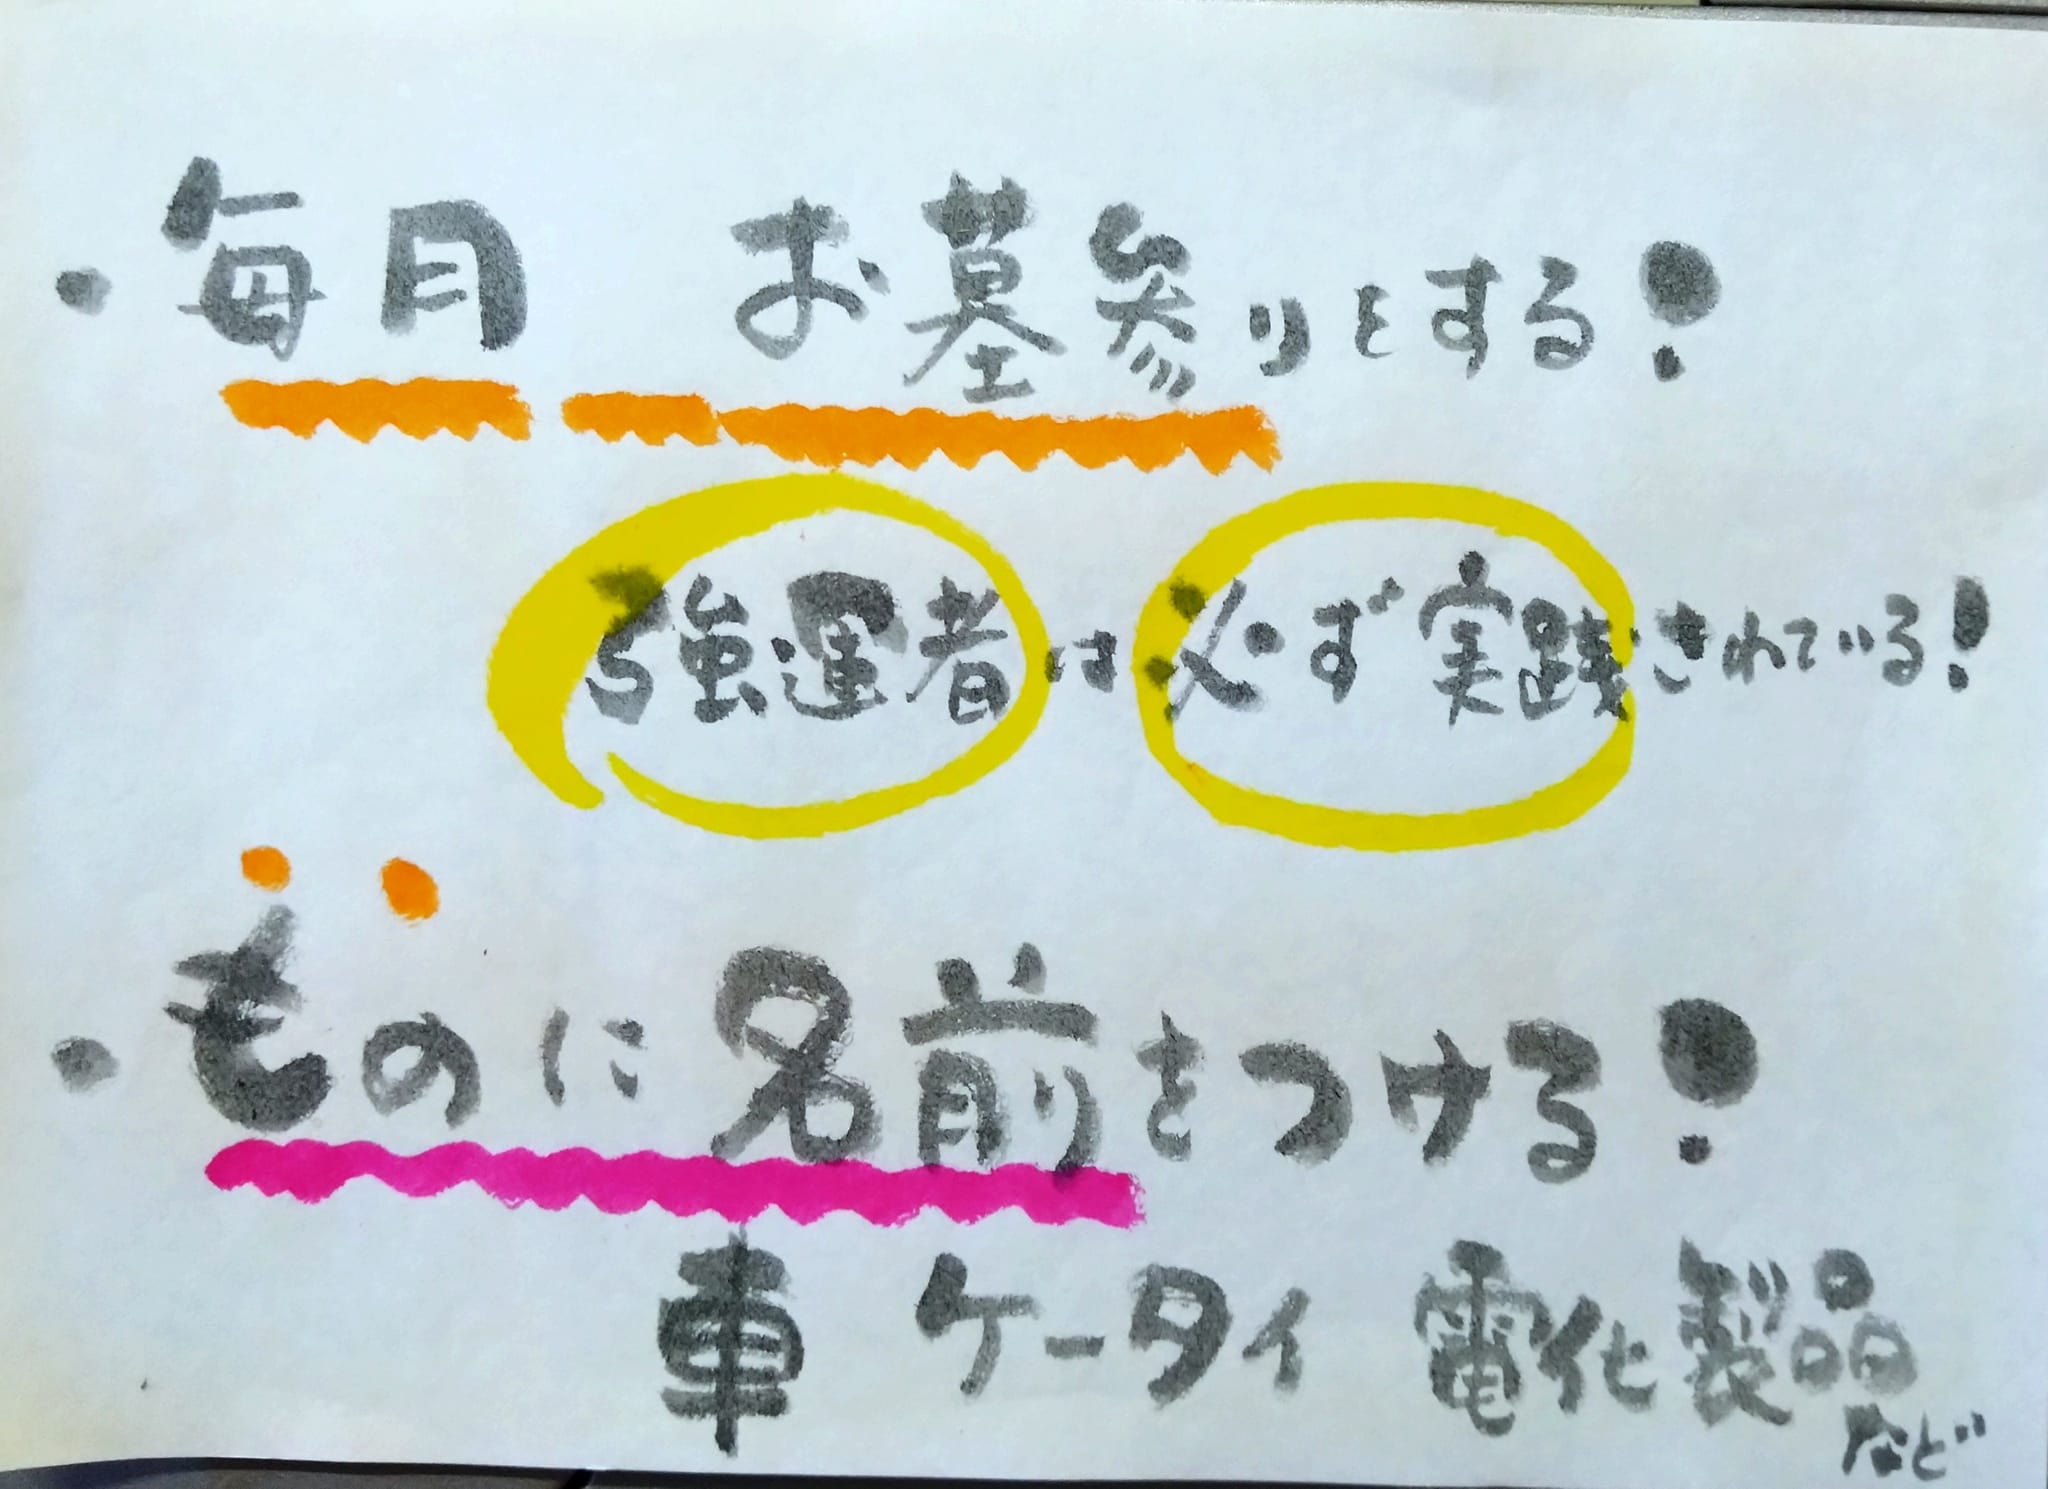 ・毎月 お墓参りをする!
強運者は必ず実践されている!
・ものに名前をつける!
車 ケータイ 電化製品
など